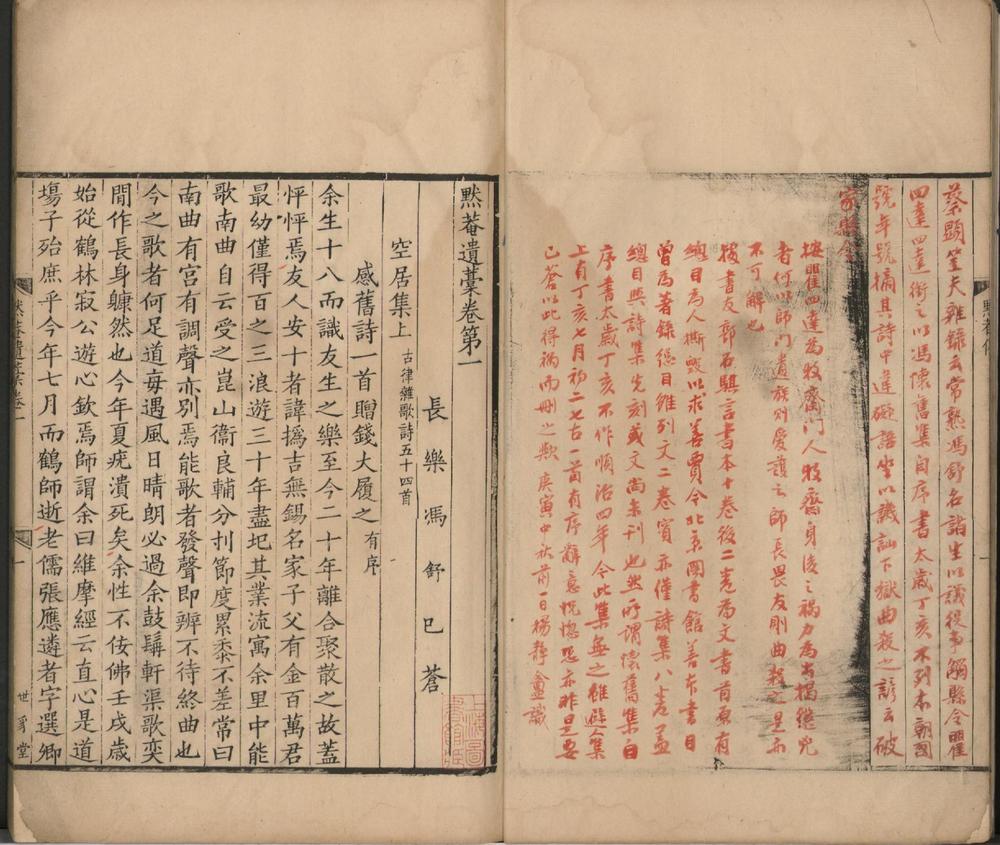 蔡顯笠夫雜錄云常熟馮舒名諸生以議役事觸縣令瞿
四達四達銜之以馮懷舊集自序書太歲丁亥不列本朝國
號年號摘其詩中違礙語坐以譏訕下獄曲殺之諺云破
家縣令
按瞿四達為牧齋門人牧齋身後之禍力為出揭懲兇
者何以師門遺族則愛護之師長畏友則曲殺之是亦
不可解也
據書友郭石騏言書本十卷後二卷為文書首原有
總目為人撕毀以求善賈今北京圖書館善本書目
曾為著錄總目雖列文二卷實亦僅詩集八卷蓋
總目與詩集先刻成文尚未刊也然所謂懷舊集自
序書太歲丁亥不作順治四年今此集無之惟避人集
上有丁亥七月初二七古一首有序辭意恍惚恐亦昨是要
已蒼以此得禍而刪之歟庚寅中秋前一日楊靜盦識
默菴遺藁卷第一
長樂馮舒巳蒼
空居集上 古律雜歌詩五十四首
感舊詩一首贈錢大履之 有序
余生十八而識友生之樂至今二十年離合聚散之故蓋
怦怦焉友人安十者諱撝吉無錫名家子父有金百萬君
最幼僅得百之三浪遊三十年盡圮其業流寓余里中能
歌南曲自云受之崑山衞良輔分刌節度累黍不差常曰
南曲有宮有調聲亦別焉能歌者發聲即辨不待終曲也
今之歌者何足道毎遇風日晴朗必過余鼓髯軒渠歌奕
閒作長身鱇然也今年夏疣潰死矣余性不佞佛壬戌歲
始從鶴林寂公遊心欽焉師謂余曰維摩經云直心是道
場子殆庶乎今年七月而鶴師逝老儒張應遴者字選卿
世豸堂
默菴遺藁卷一
一
上海圖書館藏